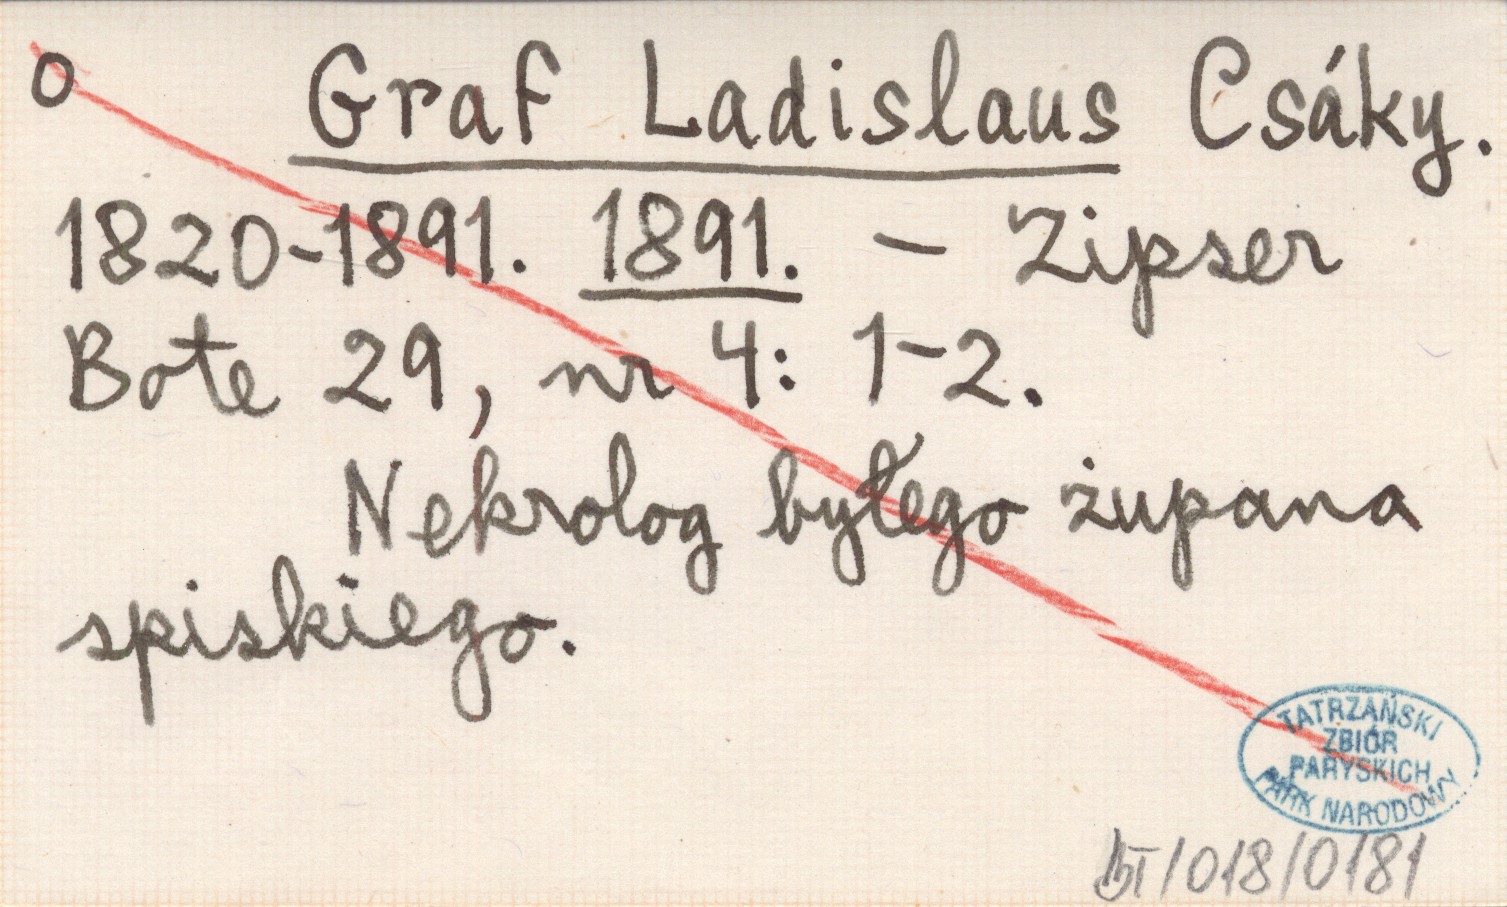 o Graf Ladislaus Csáky.
1820-1891. 1891. – Zipser
Bote 29, nr 4: 1-2.
Nekrolog byłego żupana
spiskiego.
TATRZAŃSKI
ZBIÓR
PARYSKICH
PARK NARODOWY
/018/0181